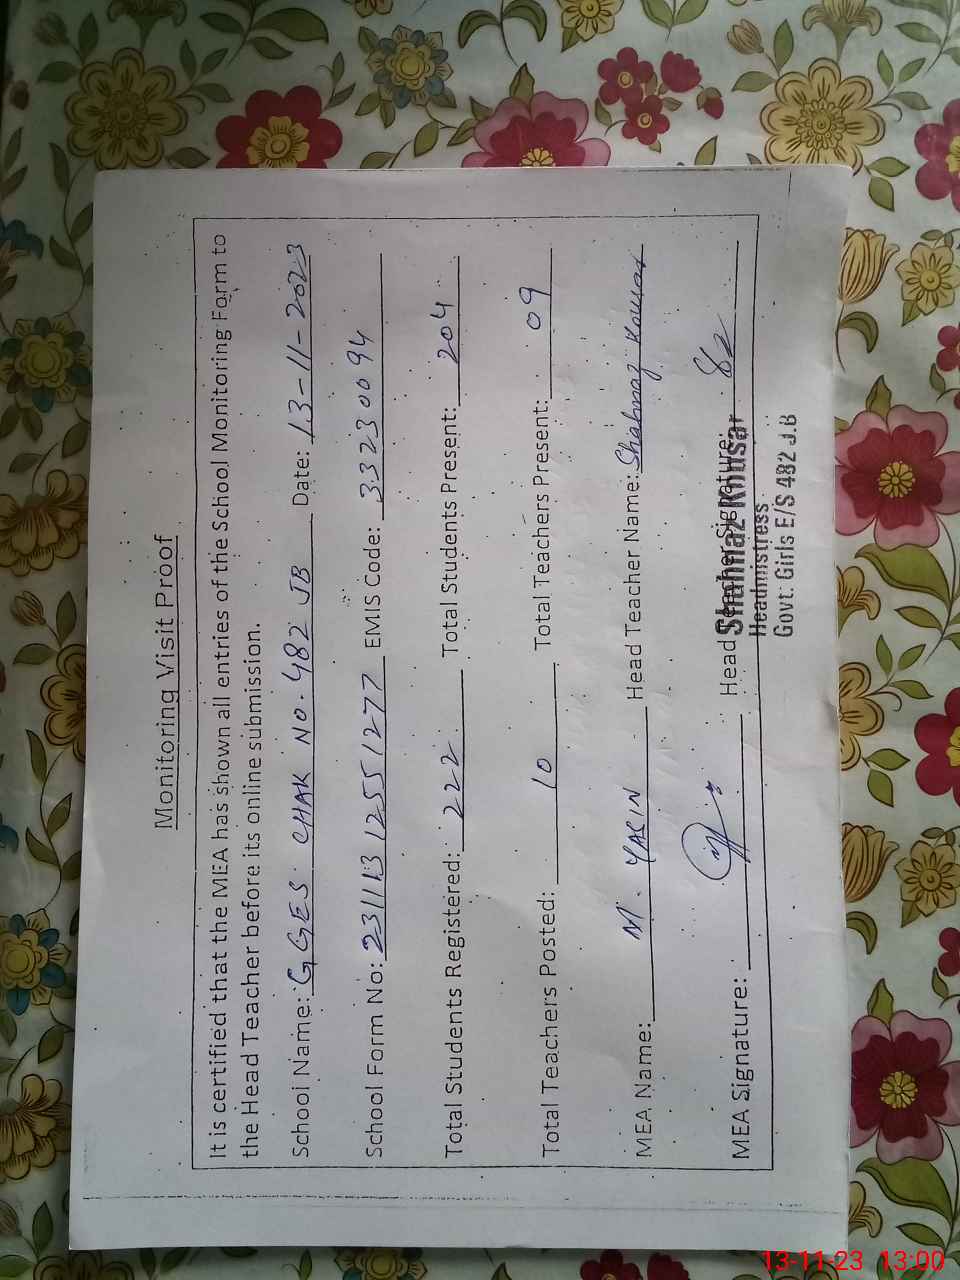 Monitoring Visit Proof
It is certified that the MEA has shown all entries of the School Monitoring Form to
the Head Teacher before its online submission.
School Name: GGES. CHAK NO. 482 JB Date: 13-11-2023
School Form No: 231113 1255 1277 EMIS Code: 33230094
Total Students Registered: 222 Total Students Present: 204
Total Teachers Posted: 10 Total Teachers Present: 09
MEA Name: M. YASIN Head Teacher Name: Shahnaz Kousar
MEA Signature: Head Teacher Signature:
Shahnaz Khusar
Headmistress
Govt: Girls E/S 482 J.B
13-11-23 13:00